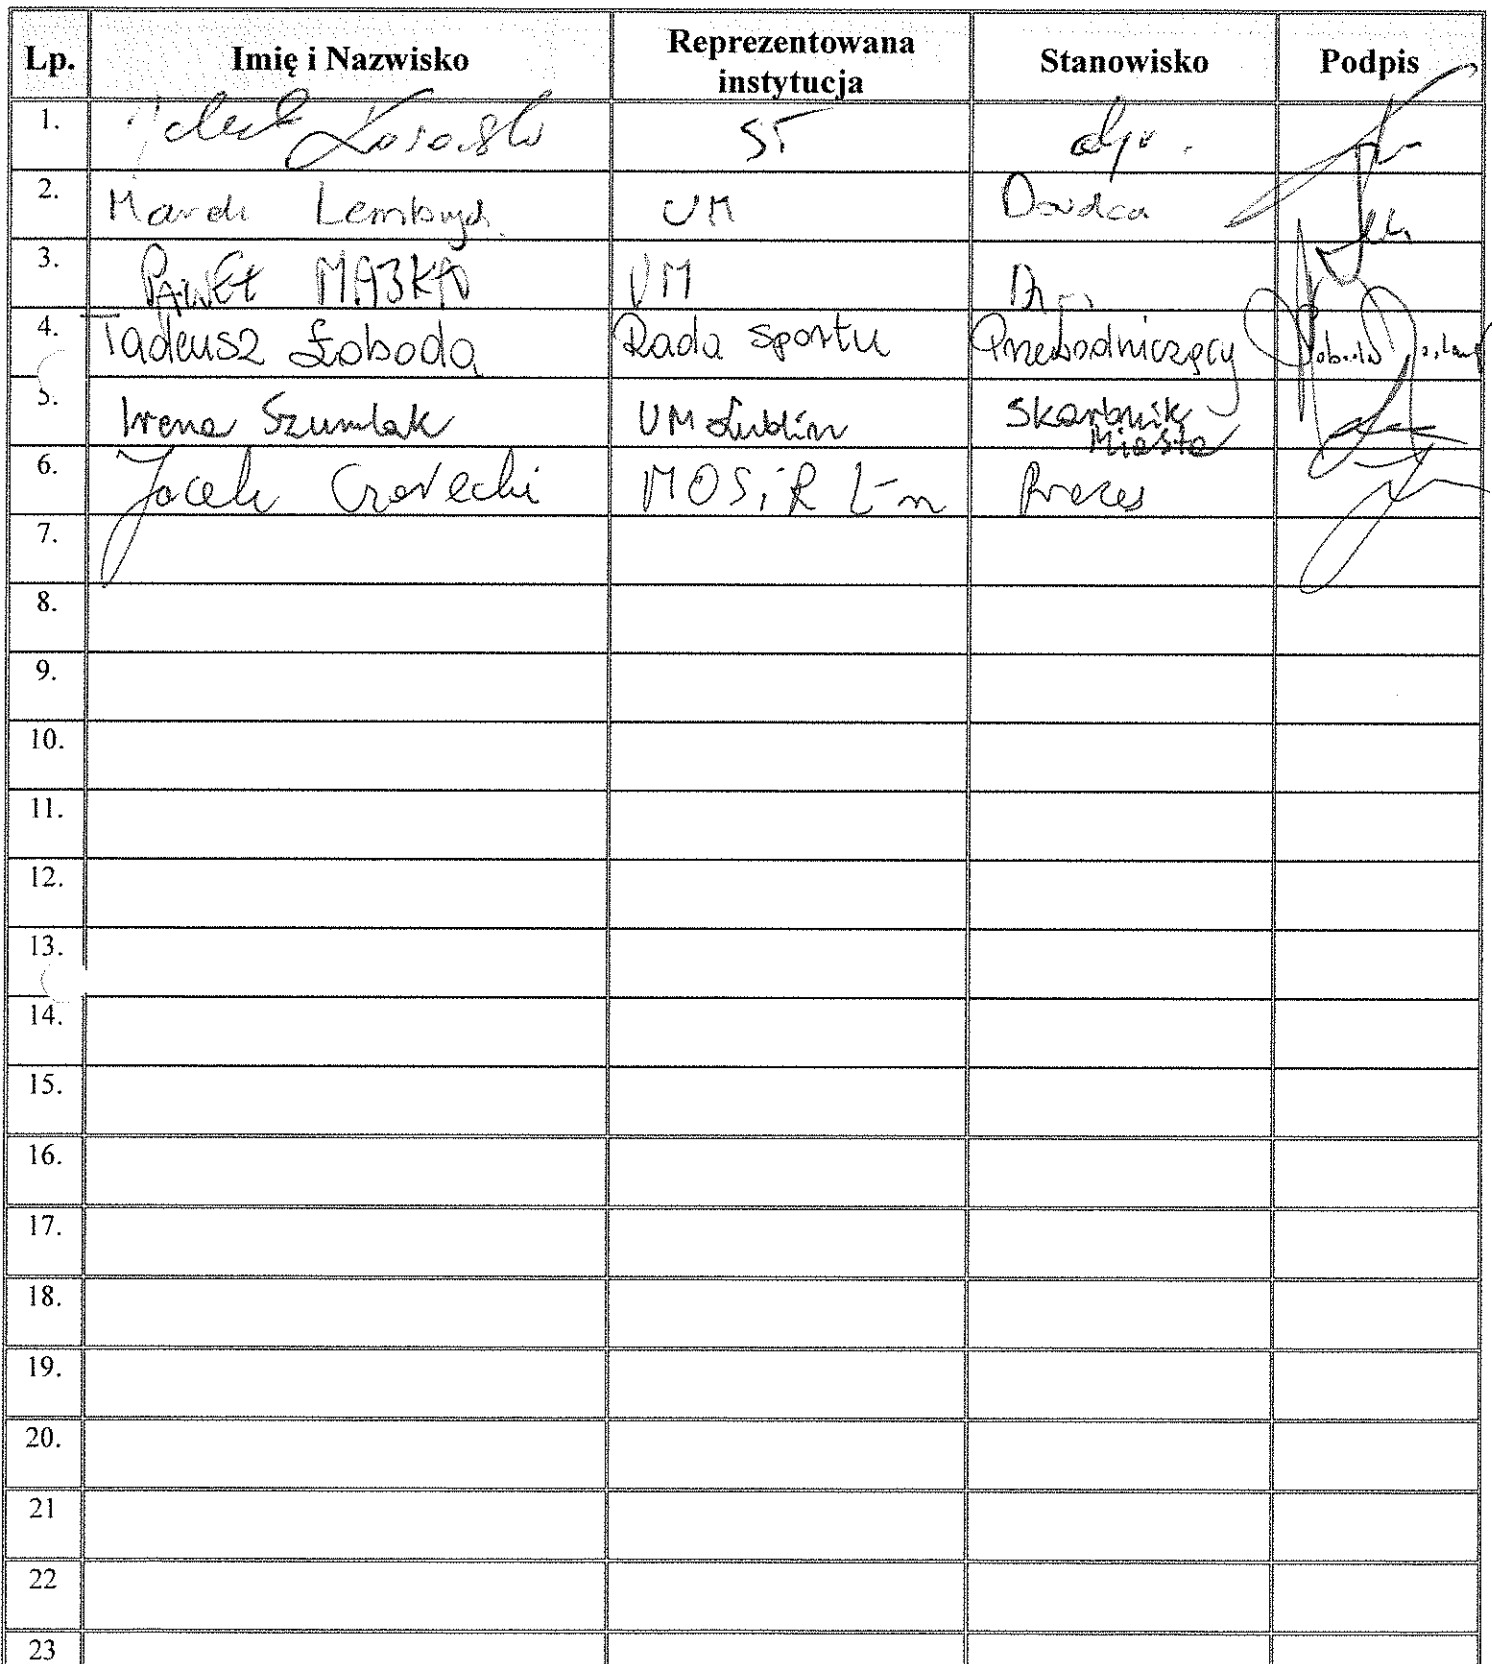 Lp. Imię i Nazwisko Reprezentowana instytucja Stanowisko Podpis
1.
2. Lembrych UM Doradca
3. PAWEŁ UM
4. Tadeusz Łoboda Rada Sportu Przewodniczący
5. Irena Szumlak UM Lublin Skarbnik Miasta
6. Jacek Czarecki MOSiR L-n Prezes
7.
8.
9.
10.
11.
12.
13.
14.
15.
16.
17.
18.
19.
20.
21
22
23